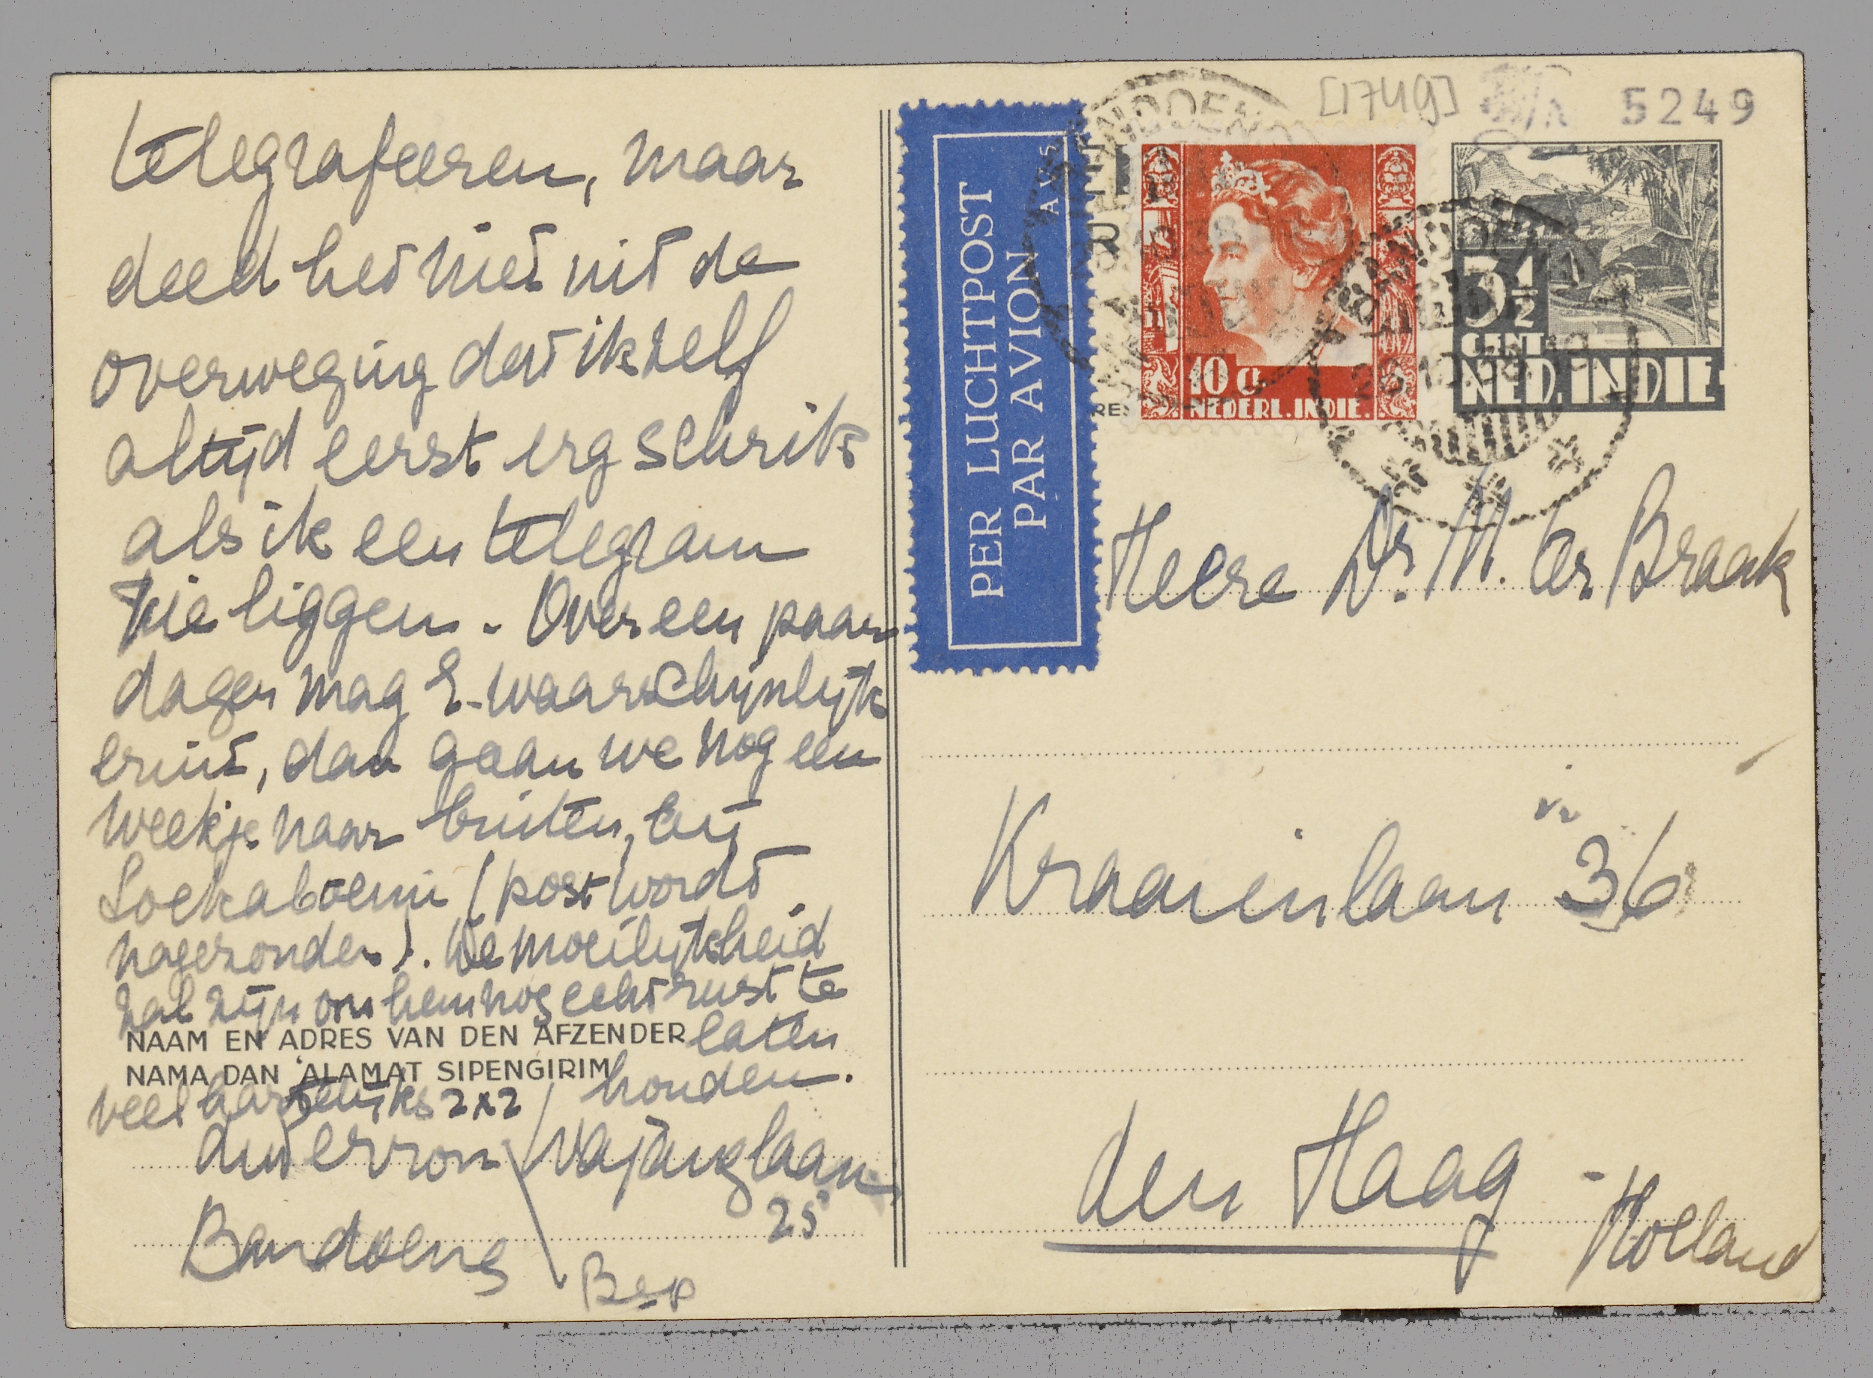 telegrafeeren, maar
deed het niet uit de
overweging dat ik zelf
altijd eerst erg schrik
als ik een telegram
zie liggen. Over een paar
dagen mag E. waarschijnlijk
eruit, dan gaan we nog een
weekje naar buiten, bij
Soekaboemi (post wordt
nagezonden). De moeilijkheid
zal zijn om hem nog echt rust te
laten
houden.
veel hartelijks 2x2
NAAM EN ADRES VAN DEN AFZENDER
NAMA DAN ALAMAT SIPENGIRIM
du Perron Wajanglaan
25
Bandoeng
Bep
PER LUCHTPOST
PAR AVION
AV 5
[1749]
5249
10 Ct
NEDERL. INDIE.
3½
CENT
NED. INDIE
BANDOENG
Heere Dr. M. ter Braak
Kraaienlaan 36
den Haag -
Holland